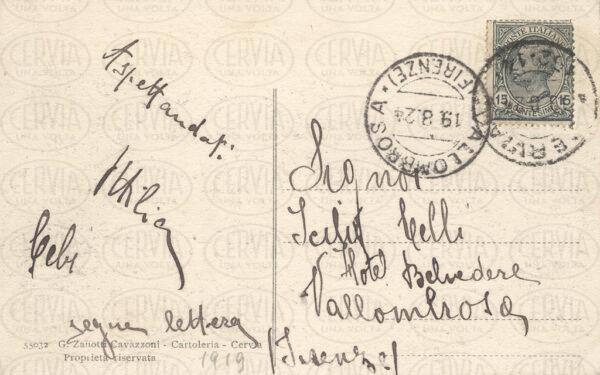 Aspettandoti
segue lettera
55032 G. Zanotti Cavazzoni - Cartoleria - Cervia
Proprietà riservata
1919
Signor
Celli
Hotel Belvedere
Vallombrosa
(Firenze)
VALLOMBROSA
(FIRENZE)
19.8.2
POSTE ITALIANE
15 15
CERVIA
UNA VOLTA